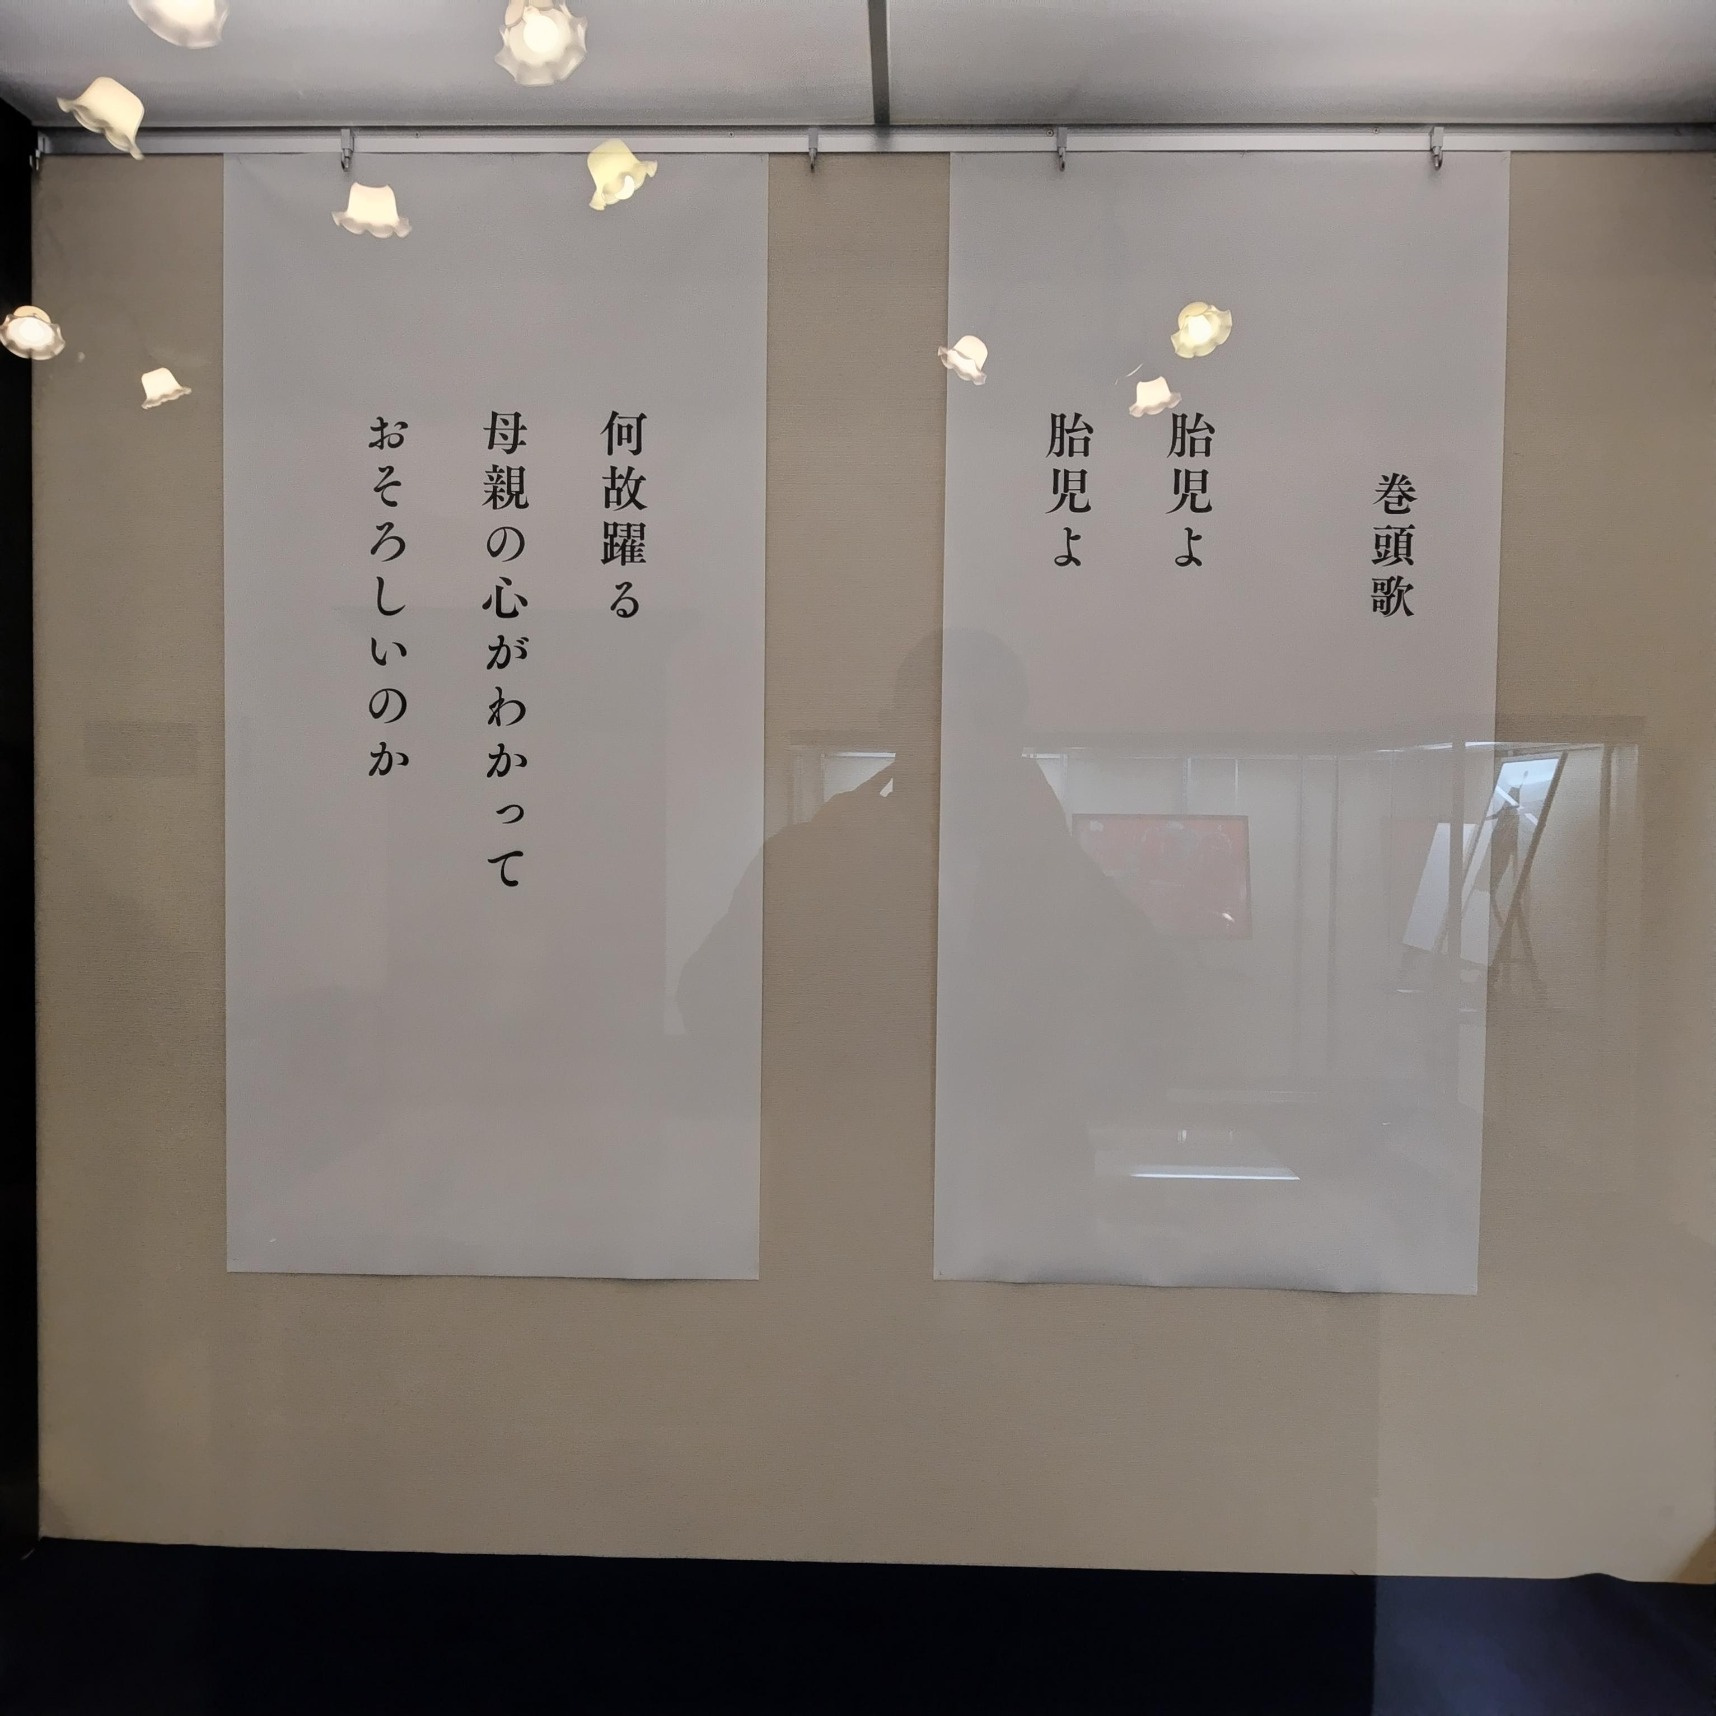 巻頭歌
胎児よ
胎児よ
何故躍る
母親の心がわかって
おそろしいのか